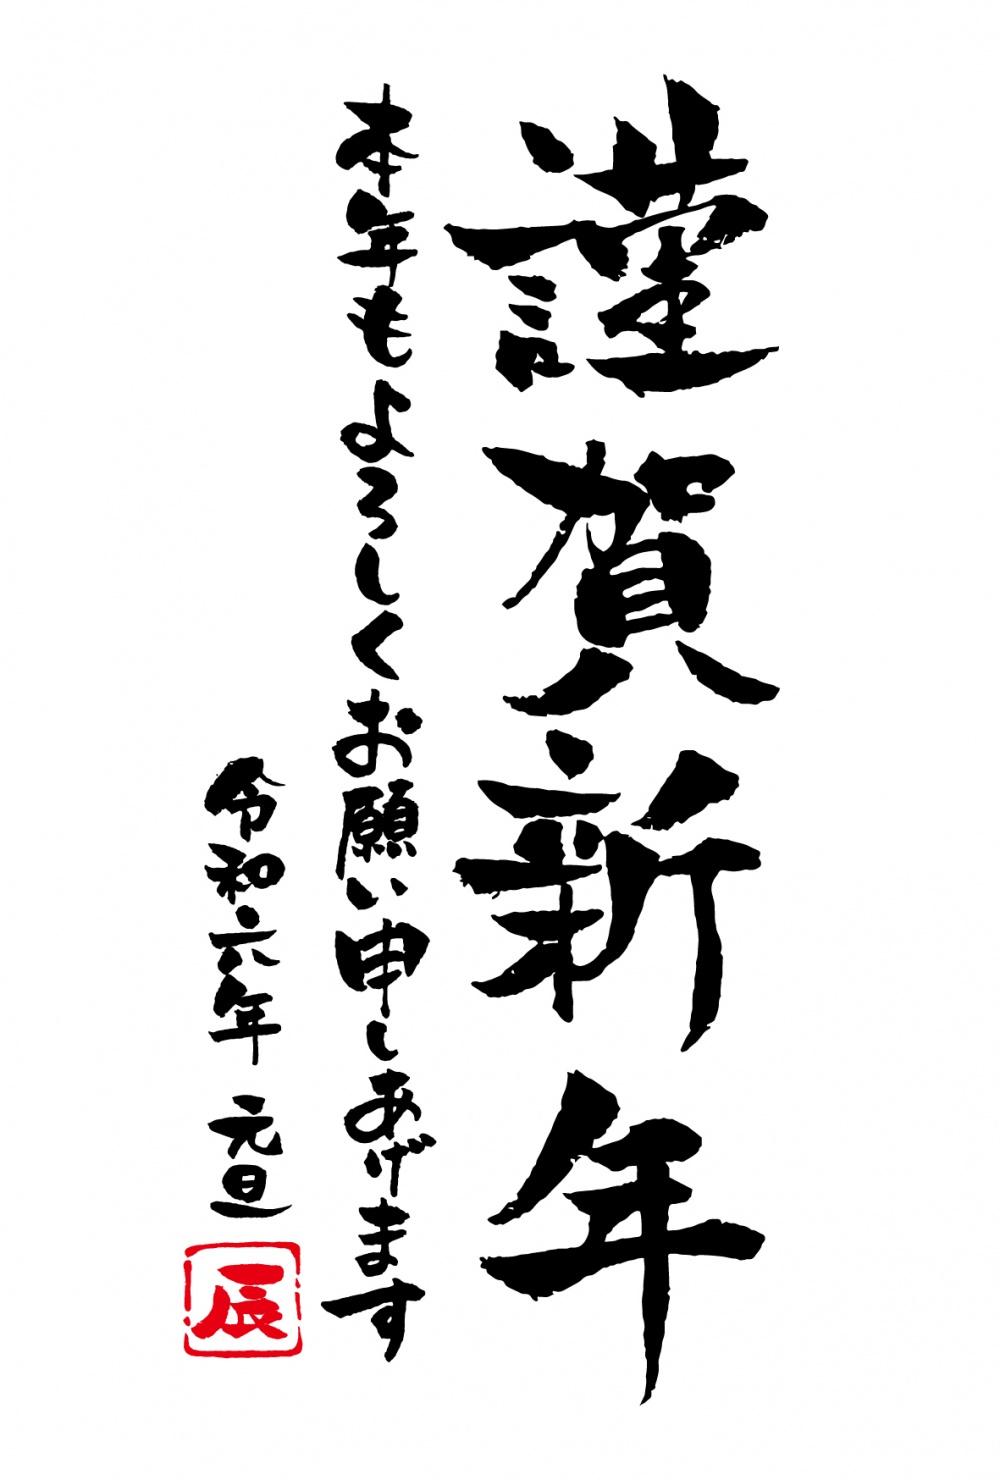 謹賀新年
本年もよろしくお願い申しあげます
令和六年 元旦
辰